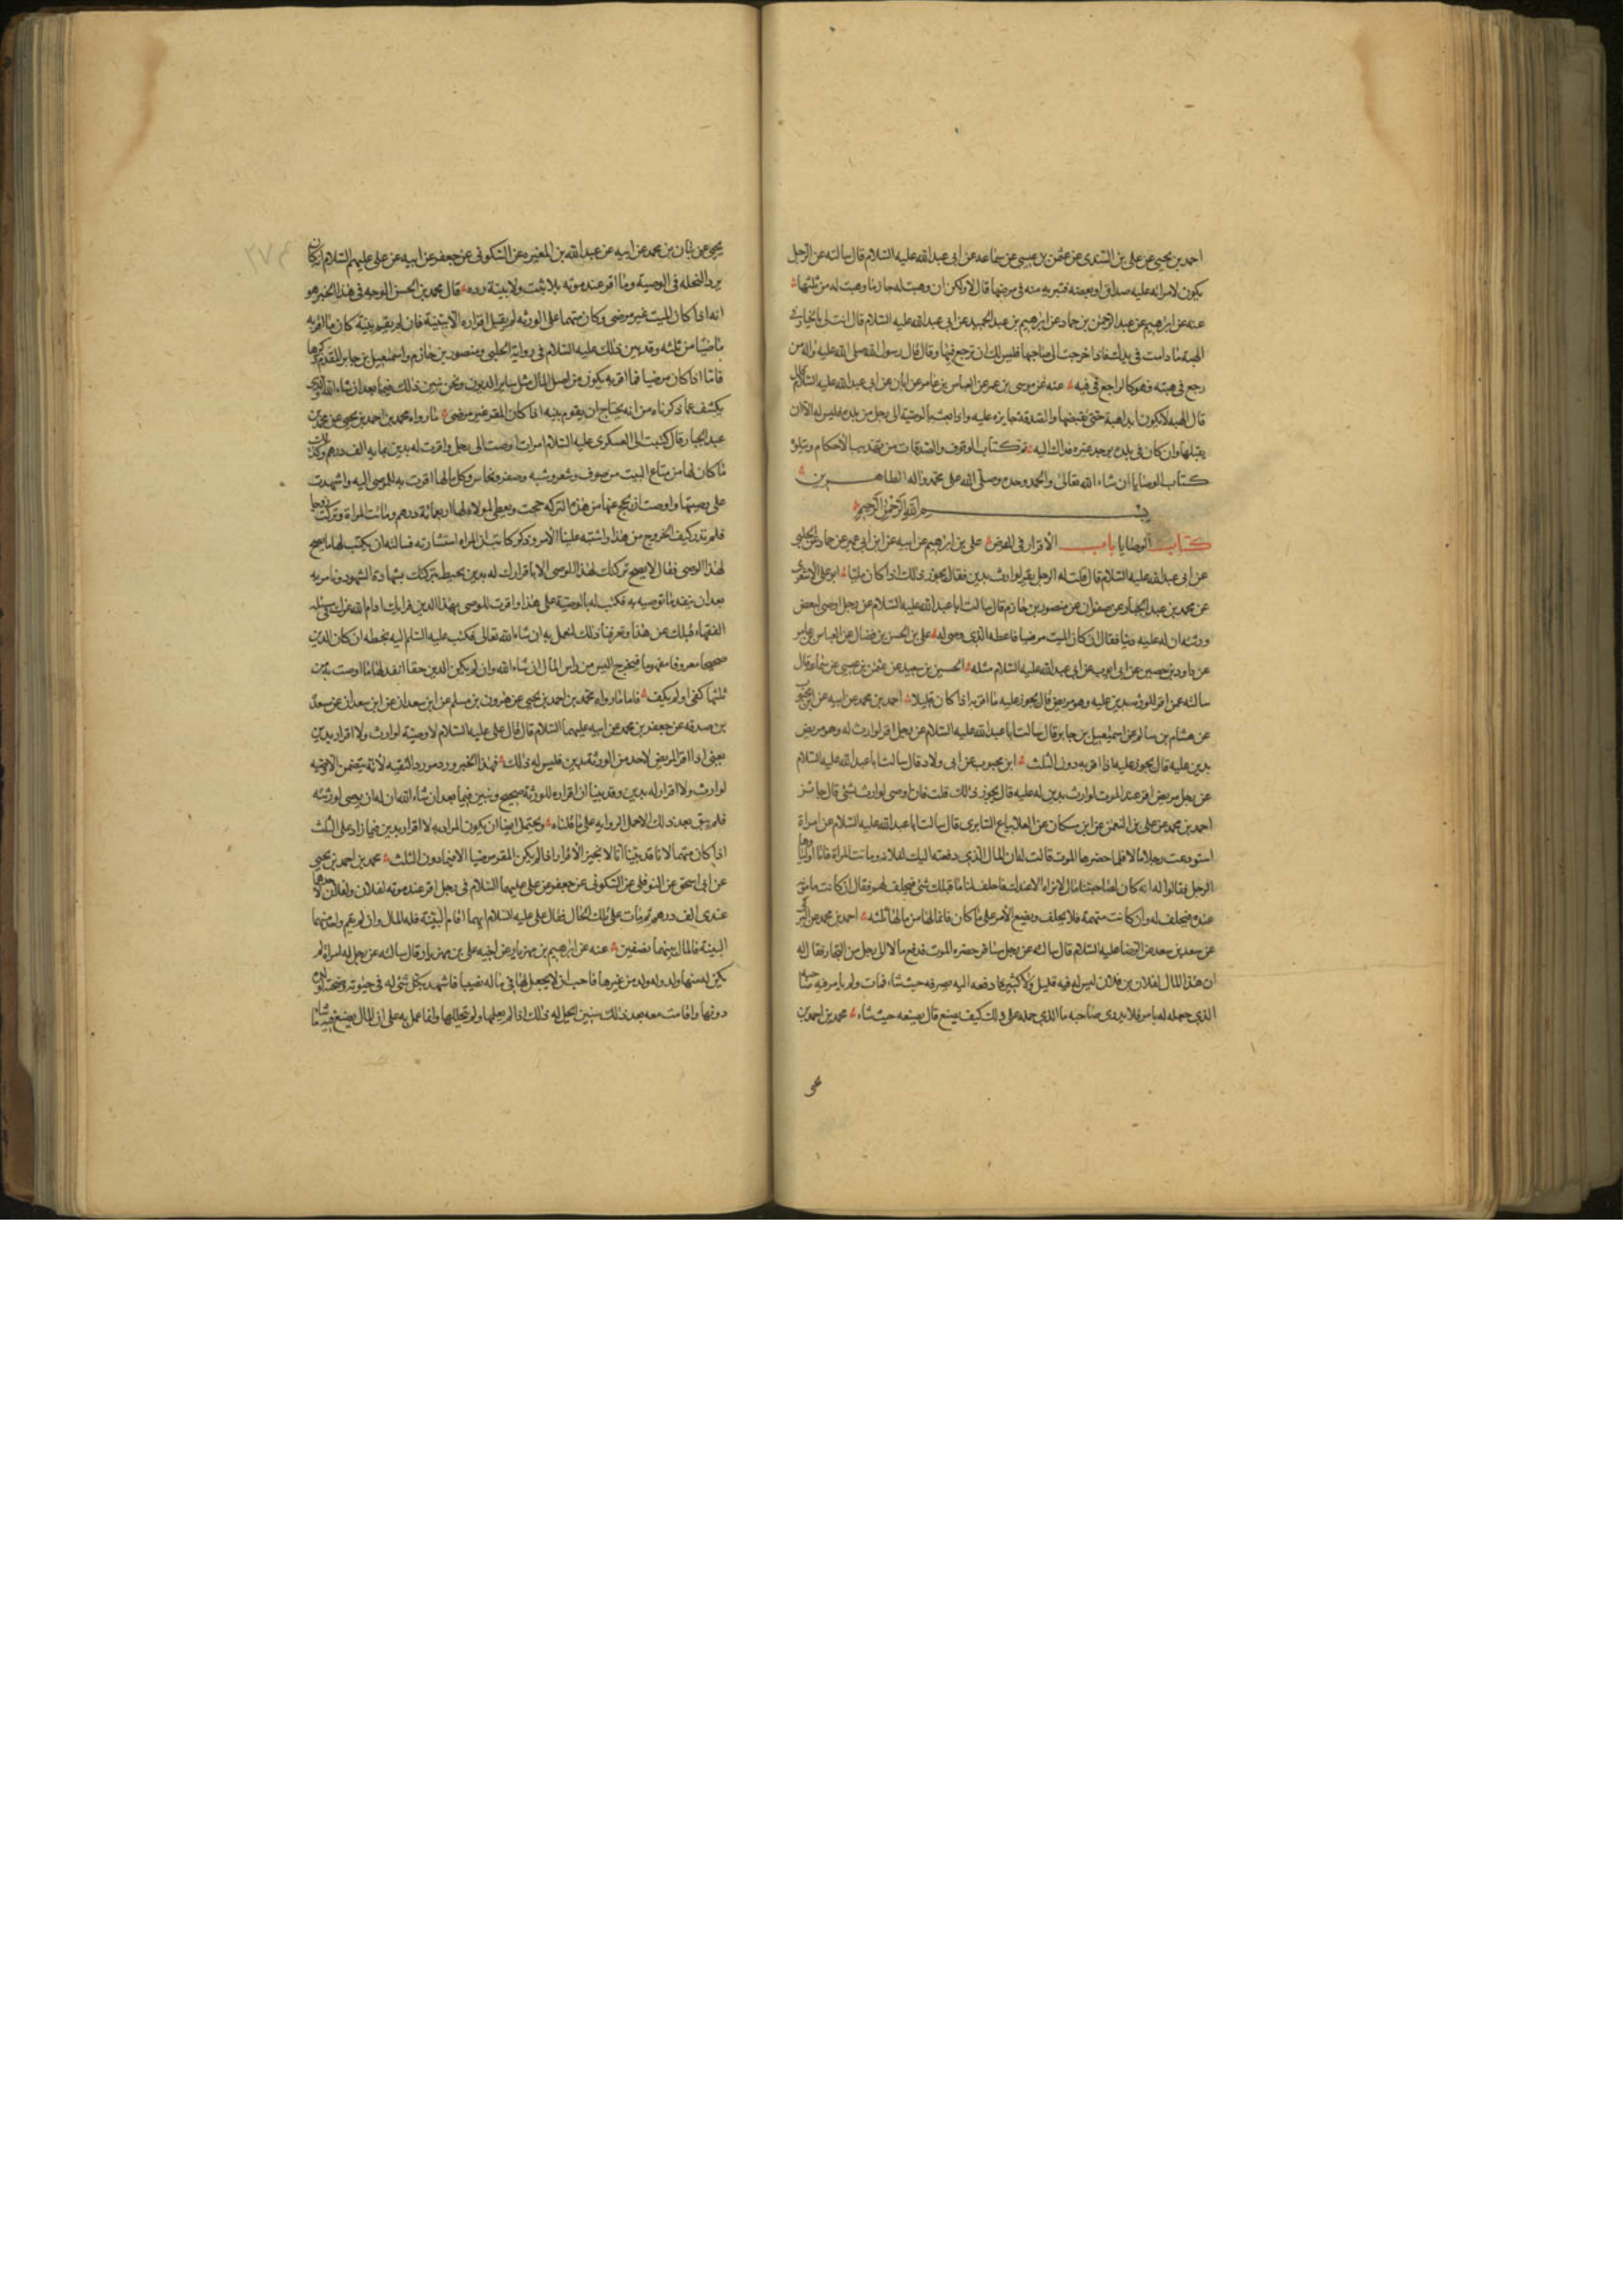 احمد بن يحيى عن على بن السندى عن عثمن بن عيسى عن سماعه عن ابى عبد الله عليه السلام قال سالته عن الرجل
يكون لامراته عليه صداق او بعضه فتبريه منه فى مرضها قال لا ولكن ان وهبت له جاز ما وهبت له من ثلثها
عنه عن ابرهيم عن عبد الرحمن بن حماد عن ابرهيم بن عبد الحميد عن ابى عبد الله عليه السلام قال انت بالخيار فى
الهبة ما دامت فى يدك فاذا خرجت الى صاحبها فليس لك ان ترجع فيها وقال قال رسول الله صلى الله عليه واله من
رجع فى هبته فهو كالراجع فى قيه عنه عن موسى بن عمر عن العباس بن عامر عن ابان عن ابى عبد الله عليه السلام
قال الهبة لا تكون ابدا هبة حتى يقبضها والصدقة جايزه عليه واذا بعث بالوصية الى رجل من بلده فليس له الا ان
يقبلها وان كان فى بلده يوجد غيره فذلك اليه تم كتاب الوقوف والصدقات من تهذيب الاحكام ويتلوه
كتاب الوصايا ان شاء الله تعالى والحمد لله وحده وصلى الله على محمد واله الطاهرين
بسم الله الرحمن الرحيم
كتاب الوصايا باب الاقرار فى المرض على بن ابرهيم عن ابيه عن ابن ابى عمير عن حماد عن الحلبى
عن ابى عبد الله عليه السلام قال قلت له الرجل يقر لوارث بدين فقال يجوز ذلك اذا كان مليا ابو على الاشعرى
عن محمد بن عبد الجبار عن صفوان عن منصور بن حازم قال سالت ابا عبد الله عليه السلام عن رجل اوصى لبعض
ورثته ان له عليه دينا فقال ان كان الميت مرضيا فاعطه الذى اوصى له على بن الحسن بن فضال عن العباس بن عامر
عن داود بن حصين عن ابى ايوب عن ابى عبد الله عليه السلام مثله الحسين بن سعيد عن عثمن بن عيسى عن سماعه قال
سالته عمن اقر للورثة بدين عليه وهو مريض قال يجوز عليه ما اقر به اذا كان قليلا احمد بن محمد عن ابيه عن
عن هشام بن سالم عن اسمعيل بن جابر قال سالت ابا عبد الله عليه السلام عن رجل اقر لوارث له وهو مريض
بدين عليه قال يجوز عليه اذا اقر به دون الثلث ابن محبوب عن ابى ولاد قال سالت ابا عبد الله عليه السلام
عن رجل مريض اقر عند الموت لوارث بدين له عليه قال يجوز ذلك قلت فان اوصى لوارث بشئ قال جائز
احمد بن محمد عن على بن النعمن عن ابن مسكان عن العلا بياع السابرى قال سالت ابا عبد الله عليه السلام عن امراة
استودعت رجلا مالا فلما حضرها الموت قالت له ان المال الذى دفعته اليك لفلانه وماتت المراة فاتا اولياوها
الرجل فقالوا له انه كان لصاحبتنا مال لا نراه الا عندك فاحلف لنا ما قبلك شئ فيحلف لهم فقال ان كانت مامونة
عنده فيحلف له وان كانت متهمة فلا يحلف ويضع الامر على ما كان فانما لها من مالها ثلثه احمد بن محمد عن
عن سعد بن سعد عن الرضا عليه السلام قال سالته عن رجل مسافر حضره الموت فدفع مالا الى رجل من التجار فقال له
ان هذا المال لفلان بن فلان ليس له فيه قليل ولا كثير فادفعه اليه يصرفه حيث شاء فمات ولم يامر فيه صاحبه
الذى جعله له بامر فلا يدرى صاحبه ما الذى حمله على ذلك كيف يصنع قال يضعه حيث شاء محمد بن احمد بن
يحيى عن بنان بن محمد عن ابيه عن عبد الله بن المغيره عن السكونى عن جعفر عن ابيه عن على عليهم السلام انه كان
يرد النحله فى الوصية وما اقر عند موته بلا ثبت ولا بينة رده قال محمد بن الحسن الوجه فى هذا الخبر هو
انه اذا كان الميت غير مرضى وكان متهما على الورثه لم يقبل اقراره الا ببينة فان لم يقم بينة كان ما اقر به
ماضيا من ثلثه وقد بين ذلك عليه السلام فى رواية الحلبى ومنصور بن حازم واسمعيل بن جابر المقدم ذكرها
فاما اذا كان مرضيا فما اقر به يكون من اصل المال مثل ساير الديون ونحن نبين ذلك فيما بعد ان شاء الله والذى
يكشف عما ذكرناه من انه يحتاج ان يقوم بينه اذا كان المقر غير مرضى ما رواه محمد بن احمد بن يحيى عن محمد بن
عبد الجبار قال كتبت الى العسكرى عليه السلام امراة اوصت الى رجل واقرت له بدين ثمانية الف درهم وكذلك
ما كان لها من متاع البيت من صوف وشعر وشبه وصفر ونحاس وكل مالها اقرت به للموصى اليه واشهدت
على وصيتها واوصت ان يحج عنها من هذه التركه حجت ويعطى لمولاه لها اربعمائة درهم وماتت المراة وتركت زوجا
فلم ندر كيف الخروج من هذا واشتبه علينا الامر وذكر كاتب ان المراه استشارته فسالته ان يكتب لها ما يصح
لهذا الوصى فقال لا يصح تركتك لهذا الوصى الا باقرارك له بدين يحيط بتركتك بشهادة الشهود وتامريه
بعد ان ينفذ ما توصيه به فكتب له بالوصية على هذا واقرت للوصى بهذا الدين فرايك ادام الله عزك فى مسئله
الفقهاء قبلك عن هذا وتعرفنا ذلك لنعمل به ان شاء الله تعالى فكتب عليه السلم اليه بخطه ان كان الدين
صحيحا معروفا مفهوما فيخرج الدين من راس المال ان شاء الله وان لم يكن الدين حقا انفذ لها ما اوصت به من
ثلثها كفى او لم يكف فاما ما رواه محمد بن احمد بن يحيى عن هرون بن مسلم عن ابن سعدان عن
بن صدقه عن جعفر بن محمد عن ابيه عليهما السلام قال قال على عليه السلام لا وصية لوارث ولا اقرار بدين
يعنى اذا اقر المريض لاحد من الورثة بدين فليس له ذلك فهذا الخبر ورد مورد التقيه لانه يتضمن الا وصيه
لوارث ولا اقرار له بدين وقد بينا ان اقراره للورثة صحيح ونبين فيما بعد ان شاء الله ان له ان يوصى لورثته
فلم يبق بعد ذلك الا حمل الروايه على ما قلناه ويحتمل ايضا ان يكون المراد به لا اقرار بدين فيما زاد على الثلث
اذا كان متهما لانا قد بينا انا لا نجيز الاقرار اذا لم يكن المقر مرضيا الا فيما دون الثلث محمد بن احمد بن يحيى
عن ابى اسحق عن النوفلى عن السكونى عن جعفر عن على عليهما السلام فى رجل اقر عند موته لفلان ولفلان لاحدهما
عندى الف درهم ثم مات على تلك الحال فقال على عليه السلام ايهما اقام البينة فله المال وان لم يقم واحد منهما
البينة فالمال بينهما نصفين عنه عن ابرهيم بن مهزيار عن اخيه على بن مهزيار قال سالته عن رجل له امراة لم
يكن له منها ولد وله ولد من غيرها فاحب ان لا يجعل لها فى ماله نصيبا فاشهد بكل شئ له فى حيوته وصحته لولده
دونها واقامت معه بعد ذلك سنين ايحل له ذلك اذا لم يعلمها ولم يتحللها وانما عمل به على ان المال له يصنع فيه ما شاء